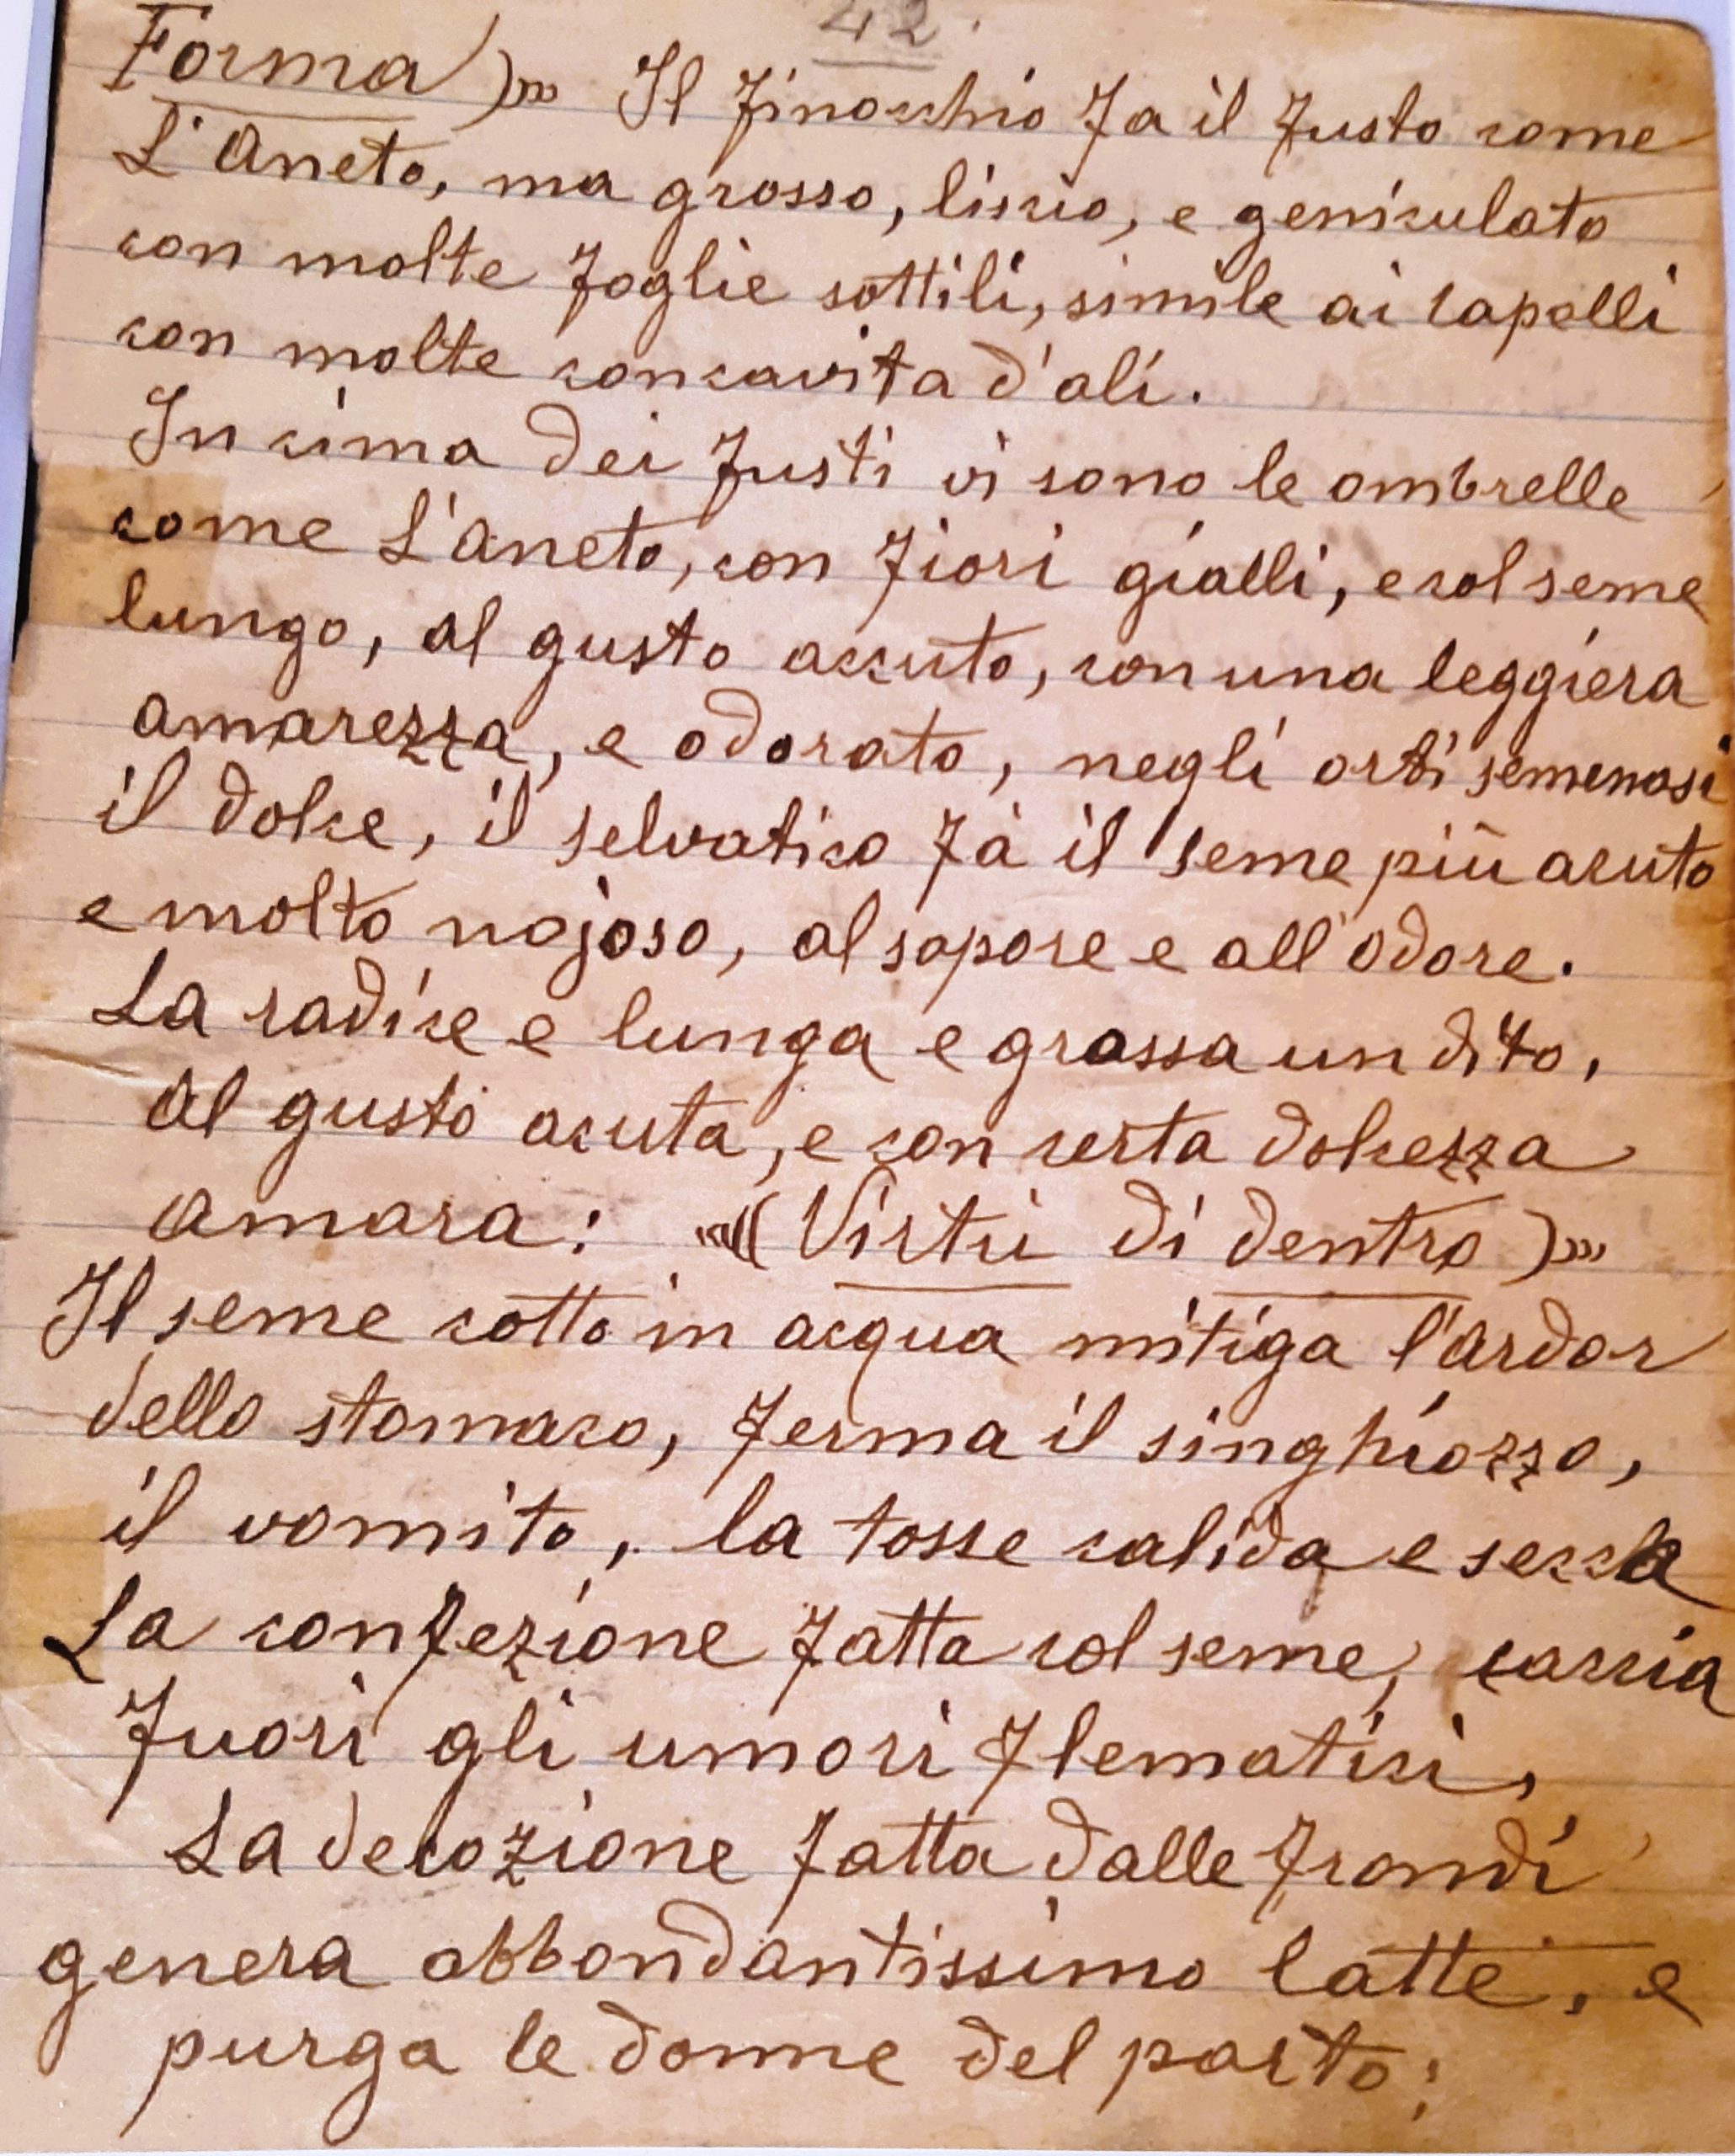 42.
Forma)» Il finocchio fa il fusto come
L'Aneto, ma grosso, liscio, e geniculato
con molte foglie sottili, simile ai capelli
con molte concavita d'ali.
In cima dei fusti vi sono le ombrelle
come L'Aneto, con fiori gialli, e col seme
lungo, al gusto accuto, con una leggiera
amarezza, e odorato, negli orti semenasi
il dolce, il selvatico fà il seme più acuto
e molto nojoso, al sapore e all'odore.
La radice e lunga e grossa un dito,
al gusto acuta, e con certa dolcezza
amara: «(Virtù di dentro)»
Il seme cotto in acqua mitiga l'ardor
dello stomaco, ferma il singhiozzo,
il vomito, la tosse calida e secca
La confezione fatta col seme, caccia
fuori gli umori flematici,
La decozione fatta dalle frondi
genera abbondantissimo latte, e
purga le donne del parto;